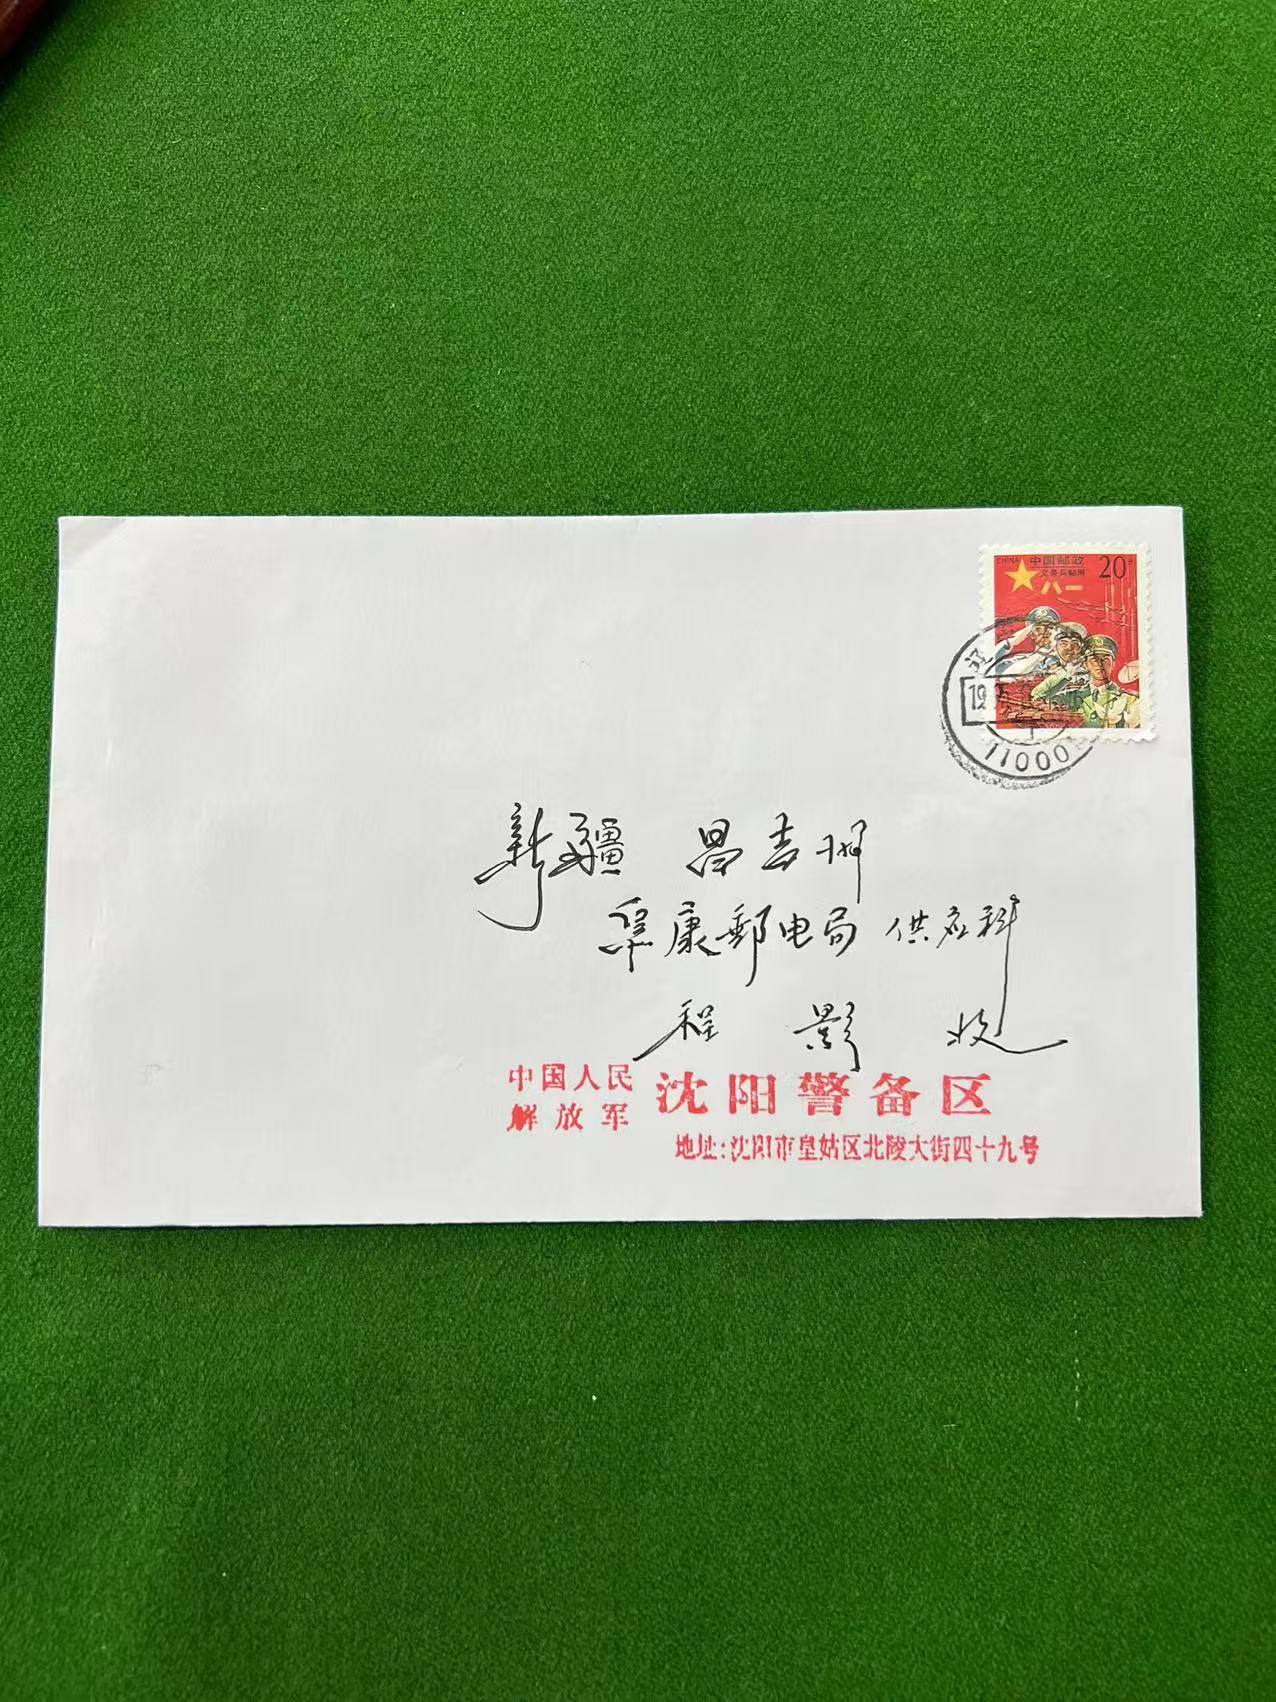 CHINA 中国邮政 20分
义务兵贴用
八一
辽宁
19
11000
新疆 昌吉州
阜康邮电局 供应科
程 影 收
中国人民解放军 沈阳警备区
地址:沈阳市皇姑区北陵大街四十九号